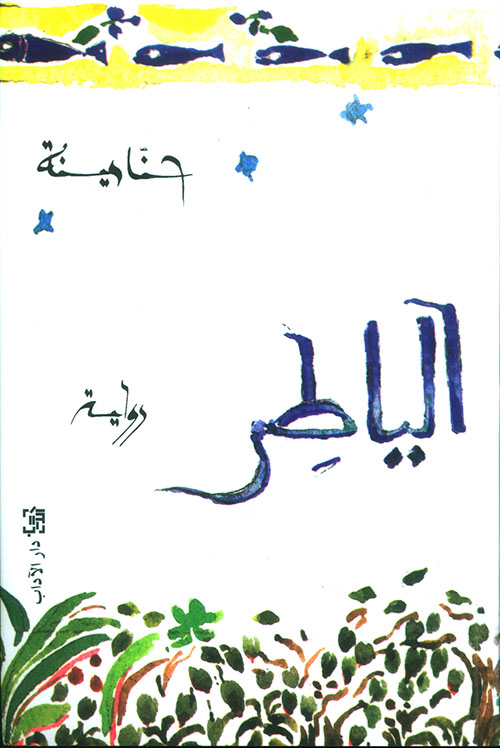 حنّا مينة
الياطِر
رواية
دار الآداب